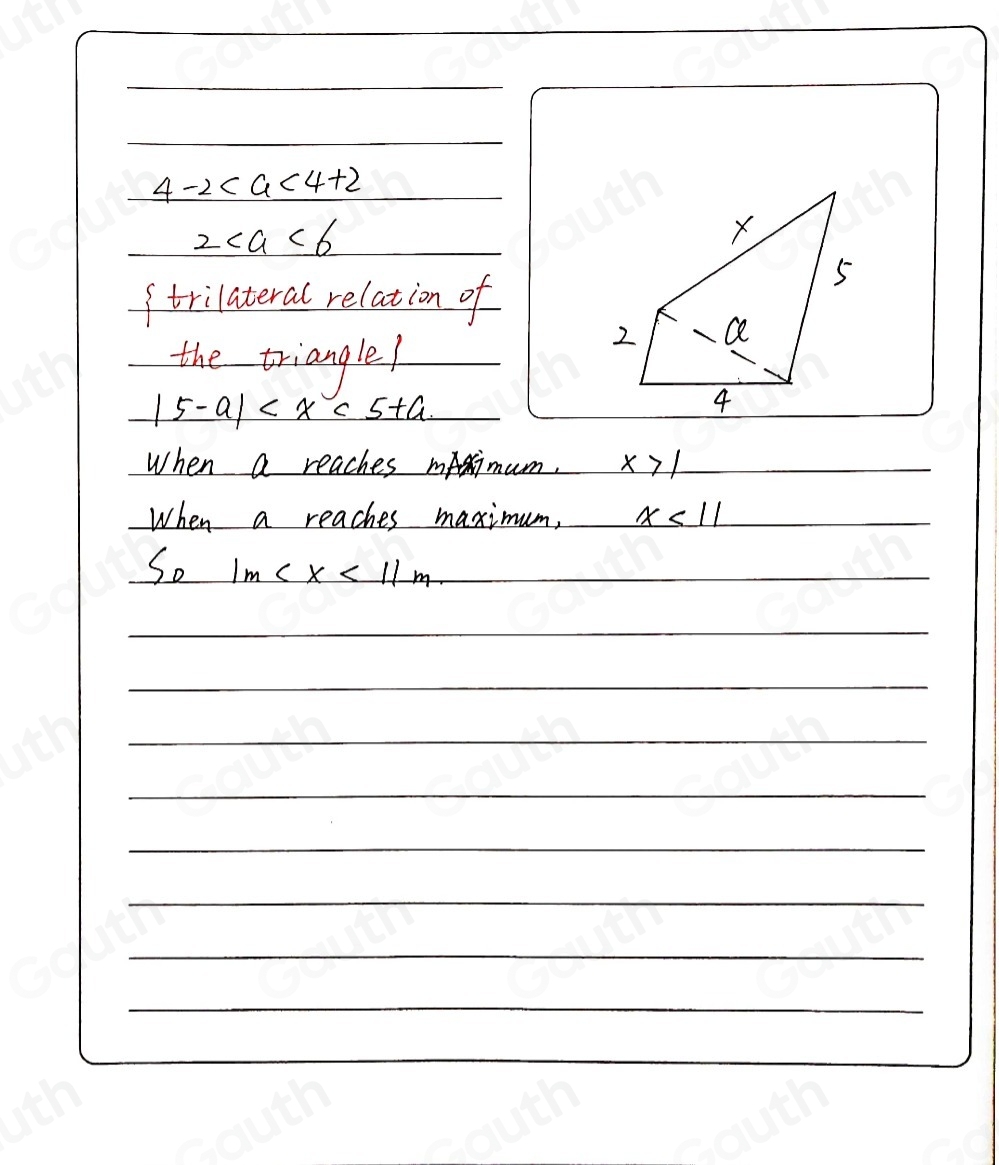 4-2<a<4+2
2<a<6
{trilateral relation of
the triangle}
|5-a|<x<5+a.
When a reaches maximum. x>1
When a reaches maximum, x<11
So 1m<x<11m.
x
5
2
a
4
Gauth